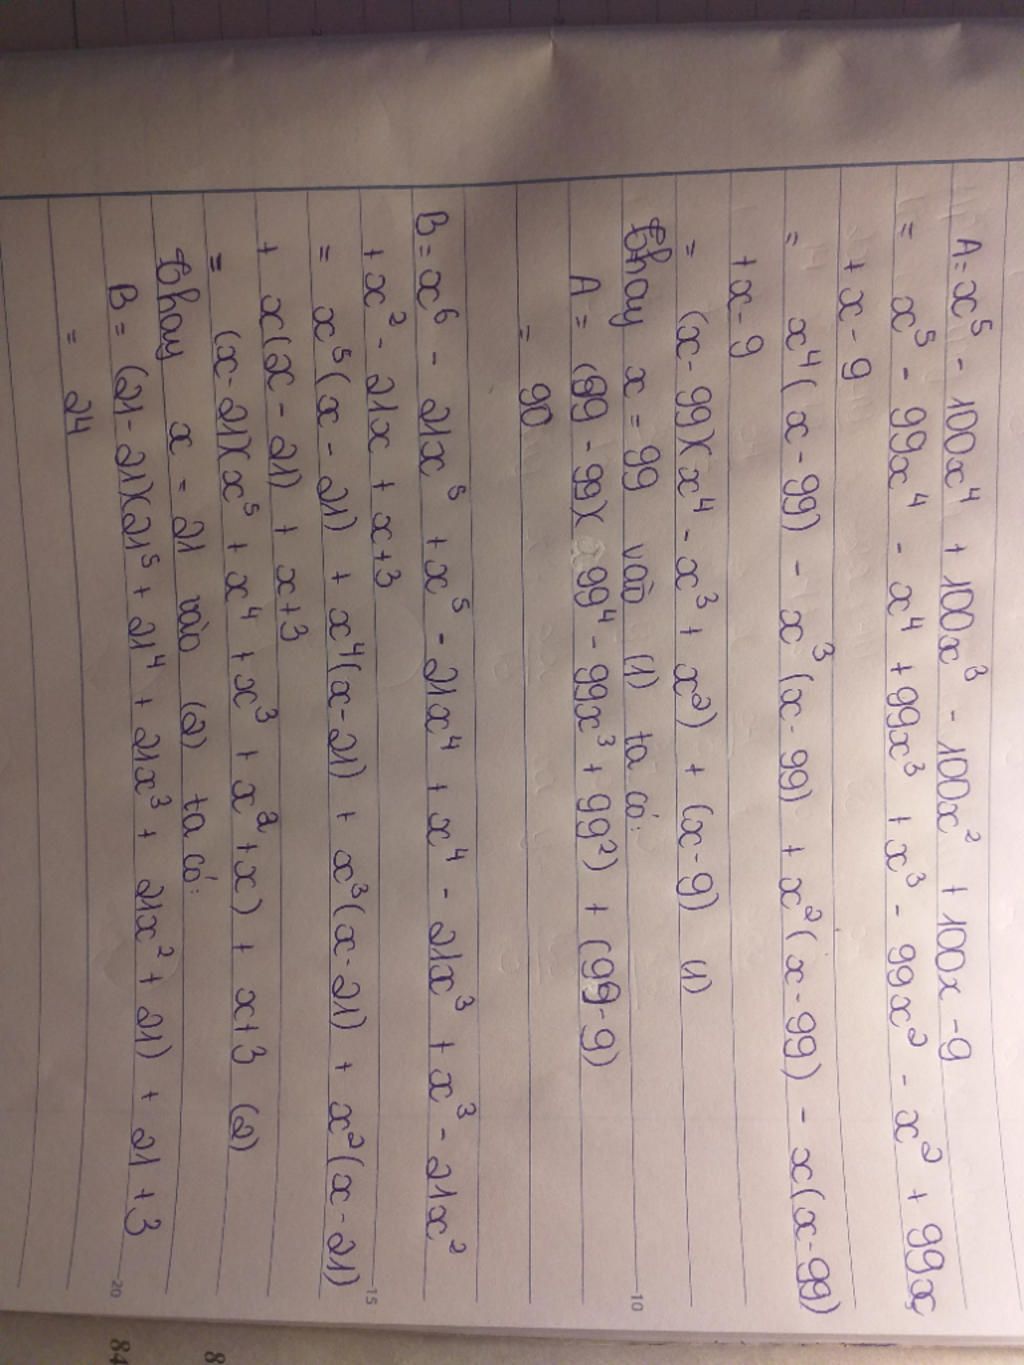 A = x⁵ - 100x⁴ + 100x³ - 100x² + 100x - 9
= x⁵ - 99x⁴ - x⁴ + 99x³ + x³ - 99x² - x² + 99x
+ x - 9
= x⁴(x - 99) - x³(x - 99) + x²(x - 99) - x(x - 99)
+ x - 9
= (x - 99)(x⁴ - x³ + x²) + (x - 9) (1)
thay x = 99 vào (1) ta có:
A = (99 - 99)(99⁴ - 99x³ + 99²) + (99 - 9)
= 90
B = x⁶ - 21x⁵ + x⁵ - 21x⁴ + x⁴ - 21x³ + x³ - 21x²
+ x² - 21x + x + 3
= x⁵(x - 21) + x⁴(x - 21) + x³(x - 21) + x²(x - 21)
+ x(x - 21) + x + 3
= (x - 21)(x⁵ + x⁴ + x³ + x² + x) + x + 3 (2)
thay x = 21 vào (2) ta có:
B = (21 - 21)(21⁵ + 21⁴ + 21x³ + 21x² + 21) + 21 + 3
= 24
10
15
20
8
84